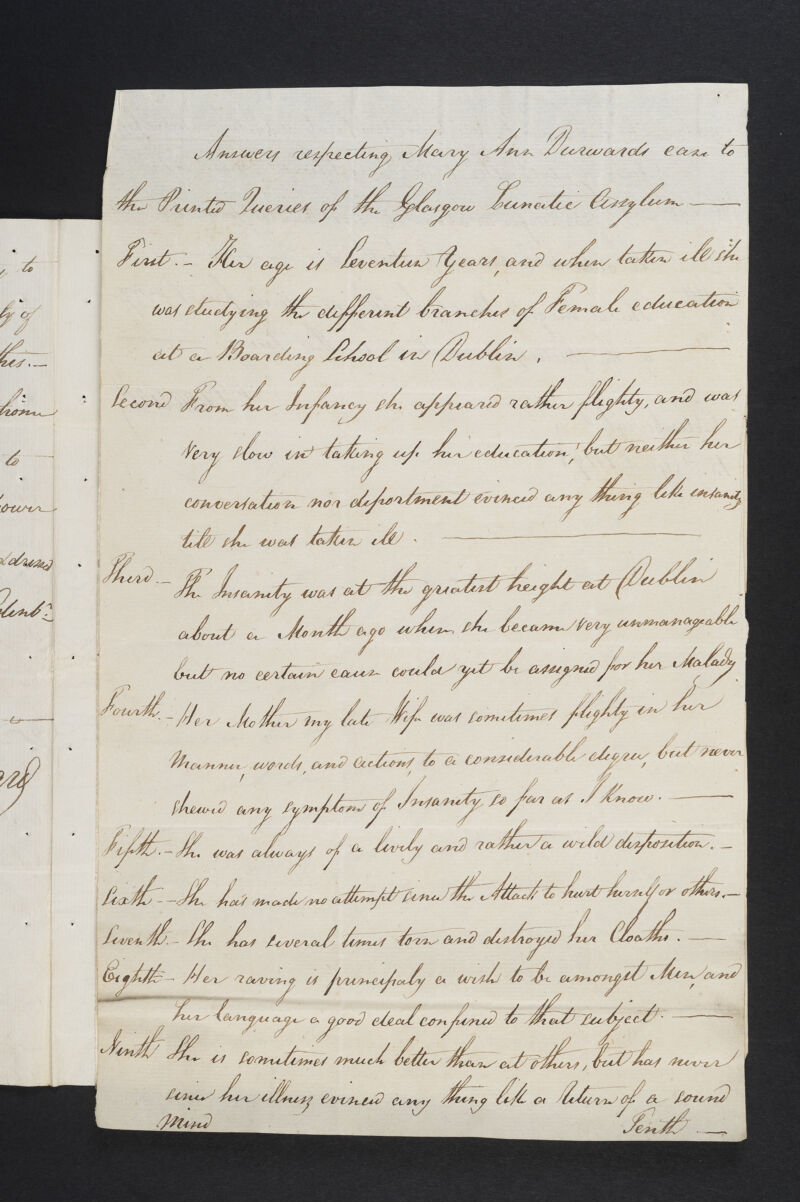 Answers respecting Mary Ann Durwards case to
the Printed Queries of the Glasgow Lunatic Assylum —
First. – Her age is Seventeen Years, and when taken ill she
was studying the different branches of Female education
at a Boarding School in Dublin. —
Second From her Infancy she appeared rather flighty, and was
very slow in taking up her education, but neither her
conversation nor deportment evinced any thing like insanity
till she was taken ill. —
Third. – The Insanity was at the greatest height at Dublin
about a Month ago when she became very unmanageable
but no certain cause could yet be assigned for her Malady
Fourth. – Her Mother my late Wife was sometimes flighty in her
Manner, words, and actions, to a considerable degree, but never
shewed any symptom of Insanity so far as I know. —
Fifth. – She was always of a lively and rather a wild disposition. –
Sixth – She has made no attempt since the Attack to hurt herself or others. –
Seventh – She has several times torn and destroyed her Cloaths. —
Eighth – Her raving is principaly a wish to be amongst Men, and
her language a good deal confined to that subject. —
Ninth She is sometimes much better than at others, but has never
since her illness evinced any thing like a return of a sound
Mind
Tenth —
to
of
home
to